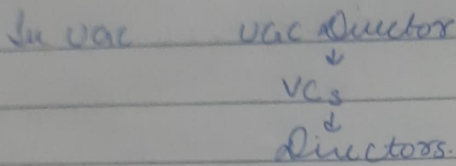 In UGC UGC Director
↓
VCs
↓
Directors.